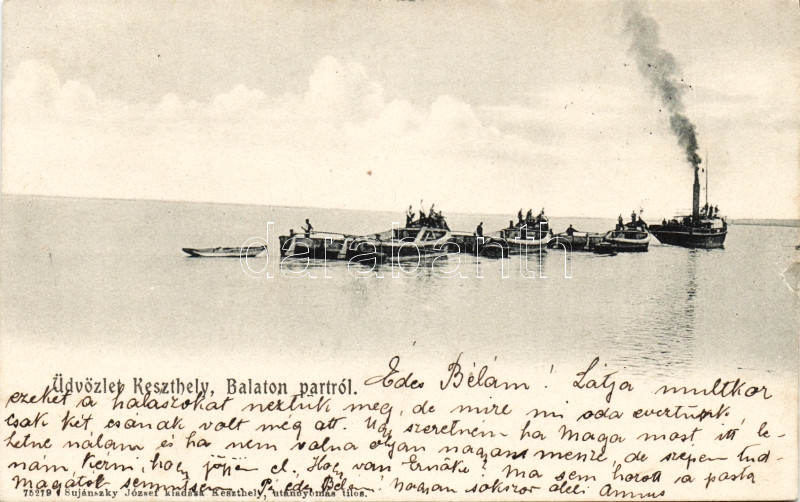 darabanth
Üdvözlet Keszthely, Balaton partról.
Édes Bélám! Látja multkor
ezeket a halászokat néztük meg, de mire mi oda evertünk
csak két csónak volt még ott. Úgy szeretném ha Maga most itt le-
hetne nálam és ha nem volna olyan nagyon messze, de szépen tud-
nám kérni, hogy jöjjön el. Hogy van Ernáké? Ma sem hozott a posta
Magától semmit sem. édes Bélám! hogyan sokszor öleli Annus
75219 Sujánszky József kiadása Keszthely, utánnyomás tilos.